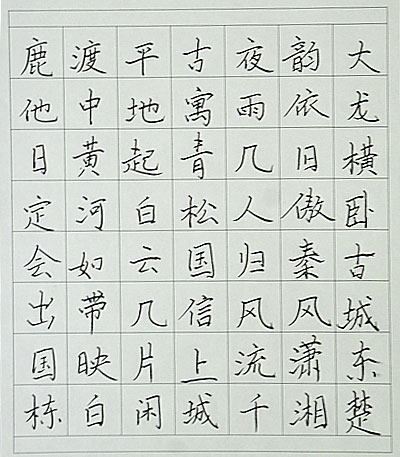 大龙横卧古城东楚
韵依旧傲秦风潇湘
夜雨几人归风流千
古寓青松国信上城
平地起白云几片闲
渡中黄河如带映白
鹿他日定会出国栋